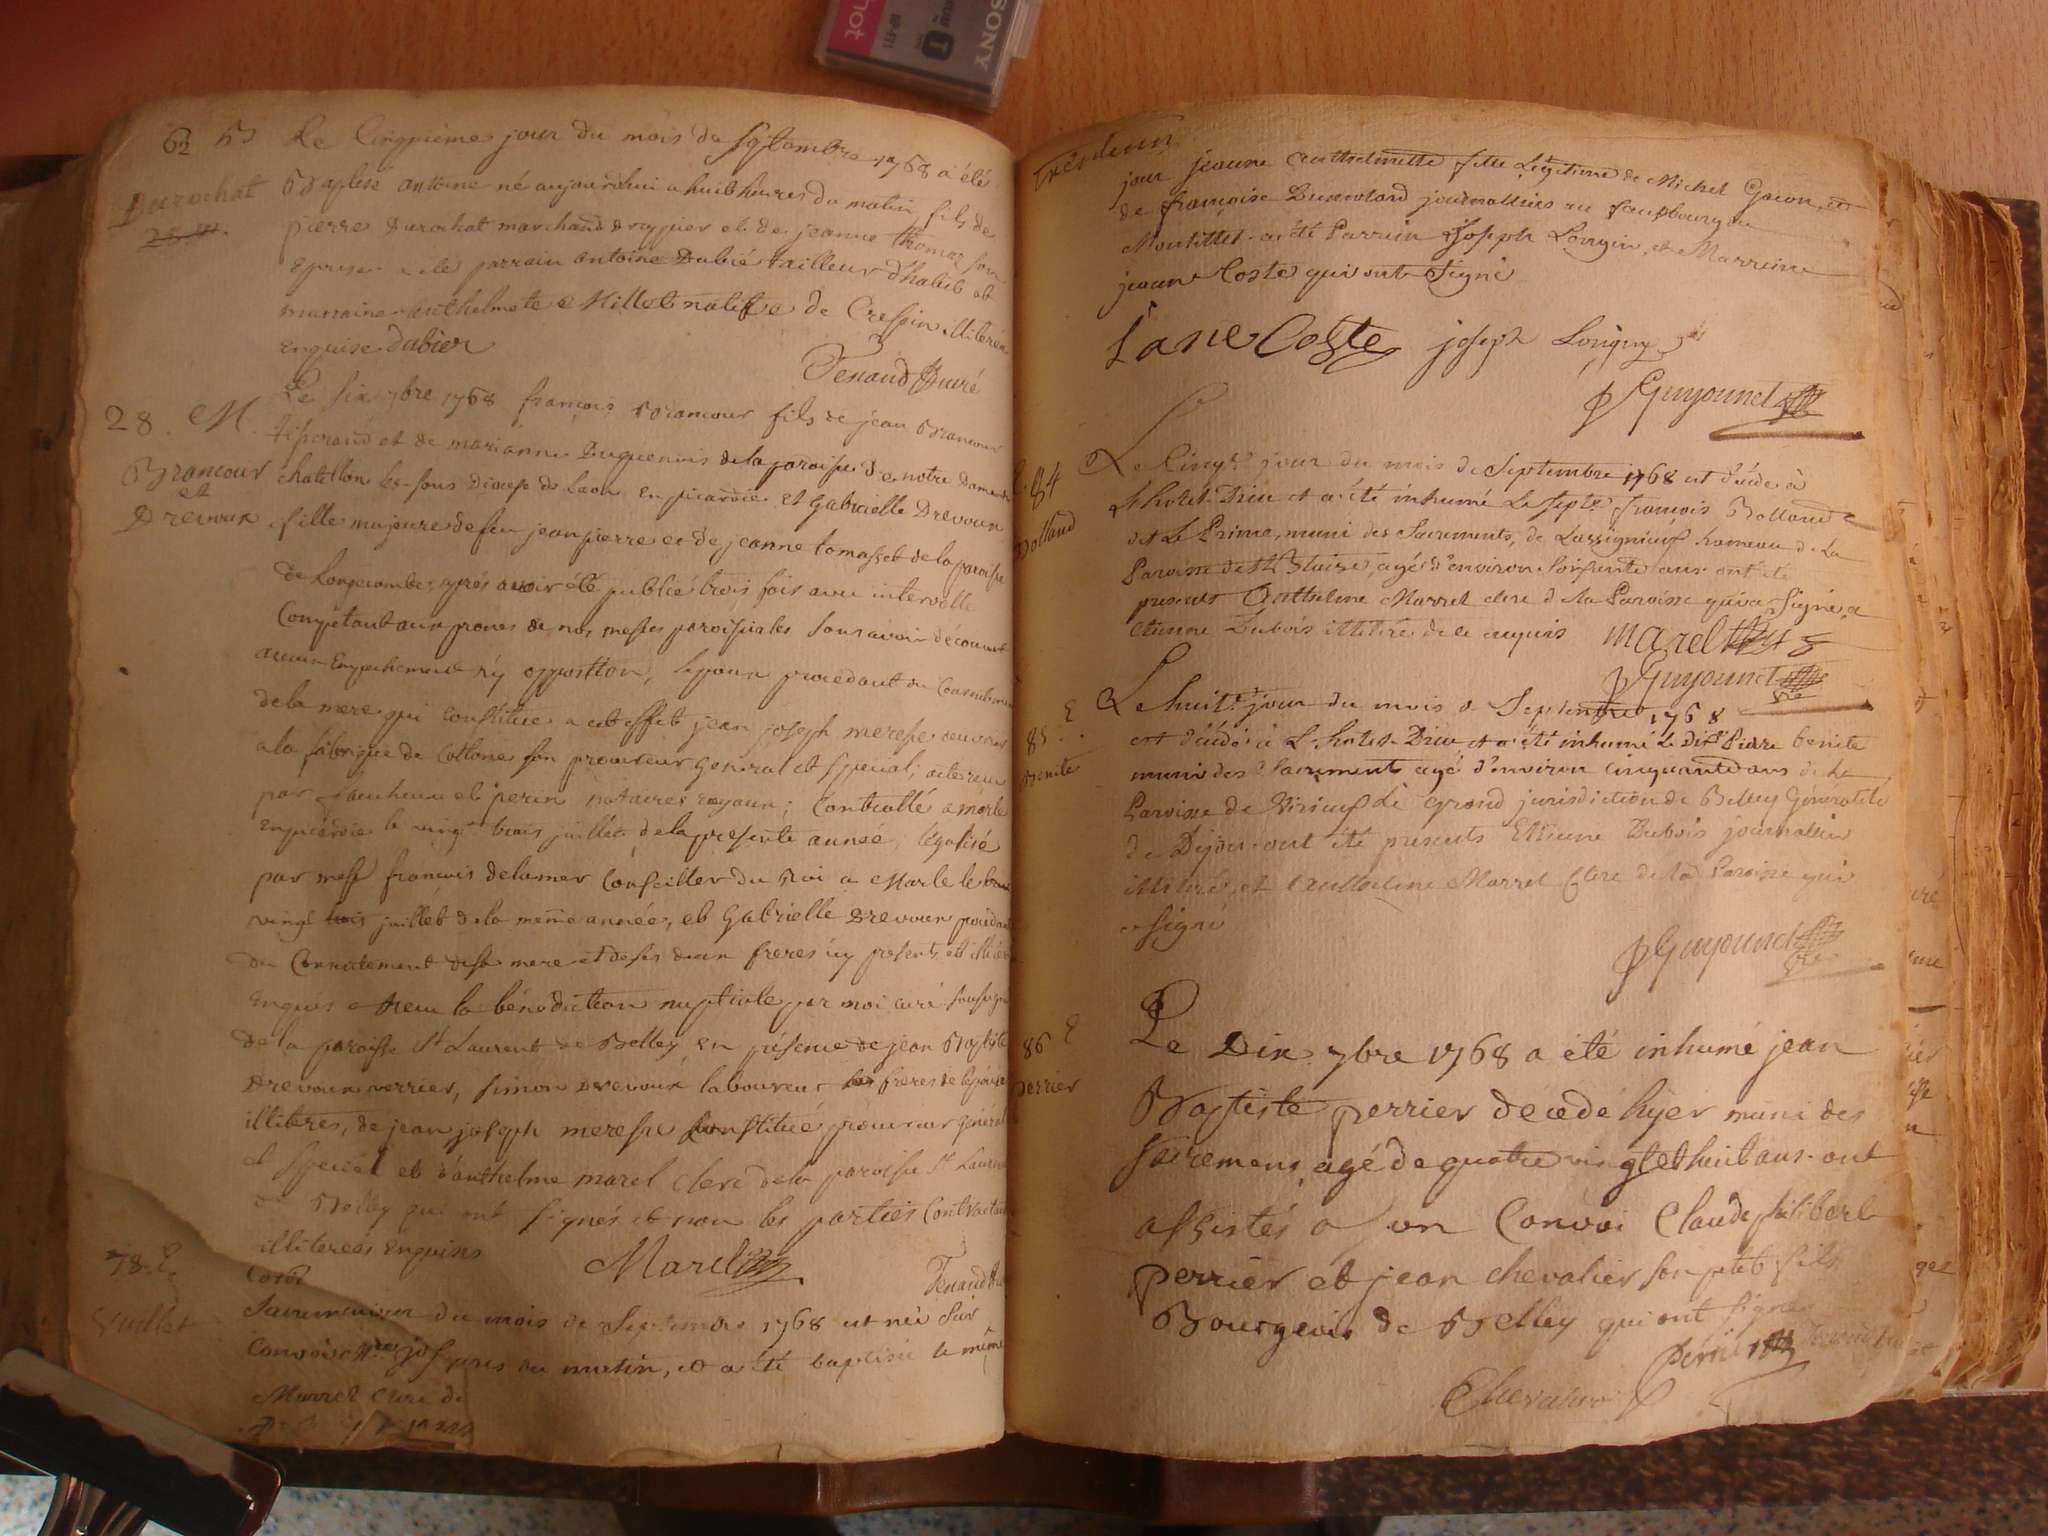 SONY
62 B Le Cinquieme jour du mois de Septembre 1768 a été
Durochat Baptisé antoine né aujourdhui a huit heures du matin fils de
pierre Durochat marchand drappier et de jeanne thomas son
epouse a ete parrain antoine Dubié tailleur d'habit et
marraine anthelmete Millet native de Crespin illiterée
enquise Dubier
Tenaud Curé
28. M. Le six 7bre 1768 françois Brancour fils de jean Brancour
tisserand et de marianne Duguenois de la paroisse de notre Dame de
Brancour et Drevoux
chatillon les sons diocese de Laon en picardie et Gabrielle Drevoux
fille majeure de feu jean pierre et de jeanne tomasset de la paroisse
de Longecombe, après avoir eté publié trois fois avec intervalle
Compétant aux prones de nos messes paroissiales sans avoir découvert
aucun Empechement ny opposition, lepoux procedant du Consentement
de la mere qui constitue a cet effet jean joseph meresse ouvrier
a la fabrique de son procureur general et special, acte recu
par et perin notaires royaux; Controllé a marle
en picardie le vingt trois juillet de la presente année, légalisé
par mess françois delamer Conseiller du Roi a Marle le
vingt trois juillet de la meme année, et Gabrielle Drevoux procedant
du Consentement de sa mere et de ses deux freres icy presents et
enquis ont recu la bénédiction nuptiale par moi curé soussigné
de la paroisse St Laurent de Belley, en présence de jean Baptiste
Drevoux verrier, simon Drevoux laboureur freres de lepouse
illiteres, de jean joseph meresse Constitué procureur général
et special et d'anthelme marel clerc de la paroisse St Laurent
de Belley qui ont signés et non les parties Contractantes
illiterées enquises
Marel
Tenaud
78. E.
du mois de Septembre 1768 est née sur
Convoi au matin, et a été baptisée le même
Marrel Clerc de
jour jeanne Anthelmette fille Légitime de Michel et
de françoise Dumolard journalliers au fauxbourg du
a été Parrain Joseph Longin, et Marreine
jeanne Coste qui ont signé
Jane Coste joseph Longin
Guyounet
84
Bolland
Le Cinqe jour du mois de Septembre 1768 est décédé à
L'hotel-Dieu et a été inhumé Le septe françois Bolland
dit Le Prince, muni des Sacrements, de Lassignieux hameau de La
Paroisse de St Blaise, agé d'environ Soixante ans. ont été
presents Anthelme Marrel clerc d la Paroisse qui a signé, et
Etienne Dubois illitéré de ce enquis
marel
Guyounet
85 E.
benite
Le huite jour du mois d Septembre 1768
est décédé à L'hotel-Dieu et a été inhumé Le dit Pierre benite
muni des Sacrements agé d'environ cinquante ans de la
Paroisse de Virieux Le grand jurisdiction de Belley Généralité
de Dijon. ont été presents Etienne Dubois journallier
illitéré, et Anthelme Marrel Clerc de la Paroisse qui
a signé
Guyounet
86 E
perrier
Le Dix 7bre 1768 a été inhumé jean
Baptiste perrier decedé hyer muni des
sacremens, agé de quatre vingt et huit ans. ont
assistés a son Convoi Claude philibert
perrier et jean chevalier son petit fils
Bourgeois de Belley qui ont signé
Chevalier